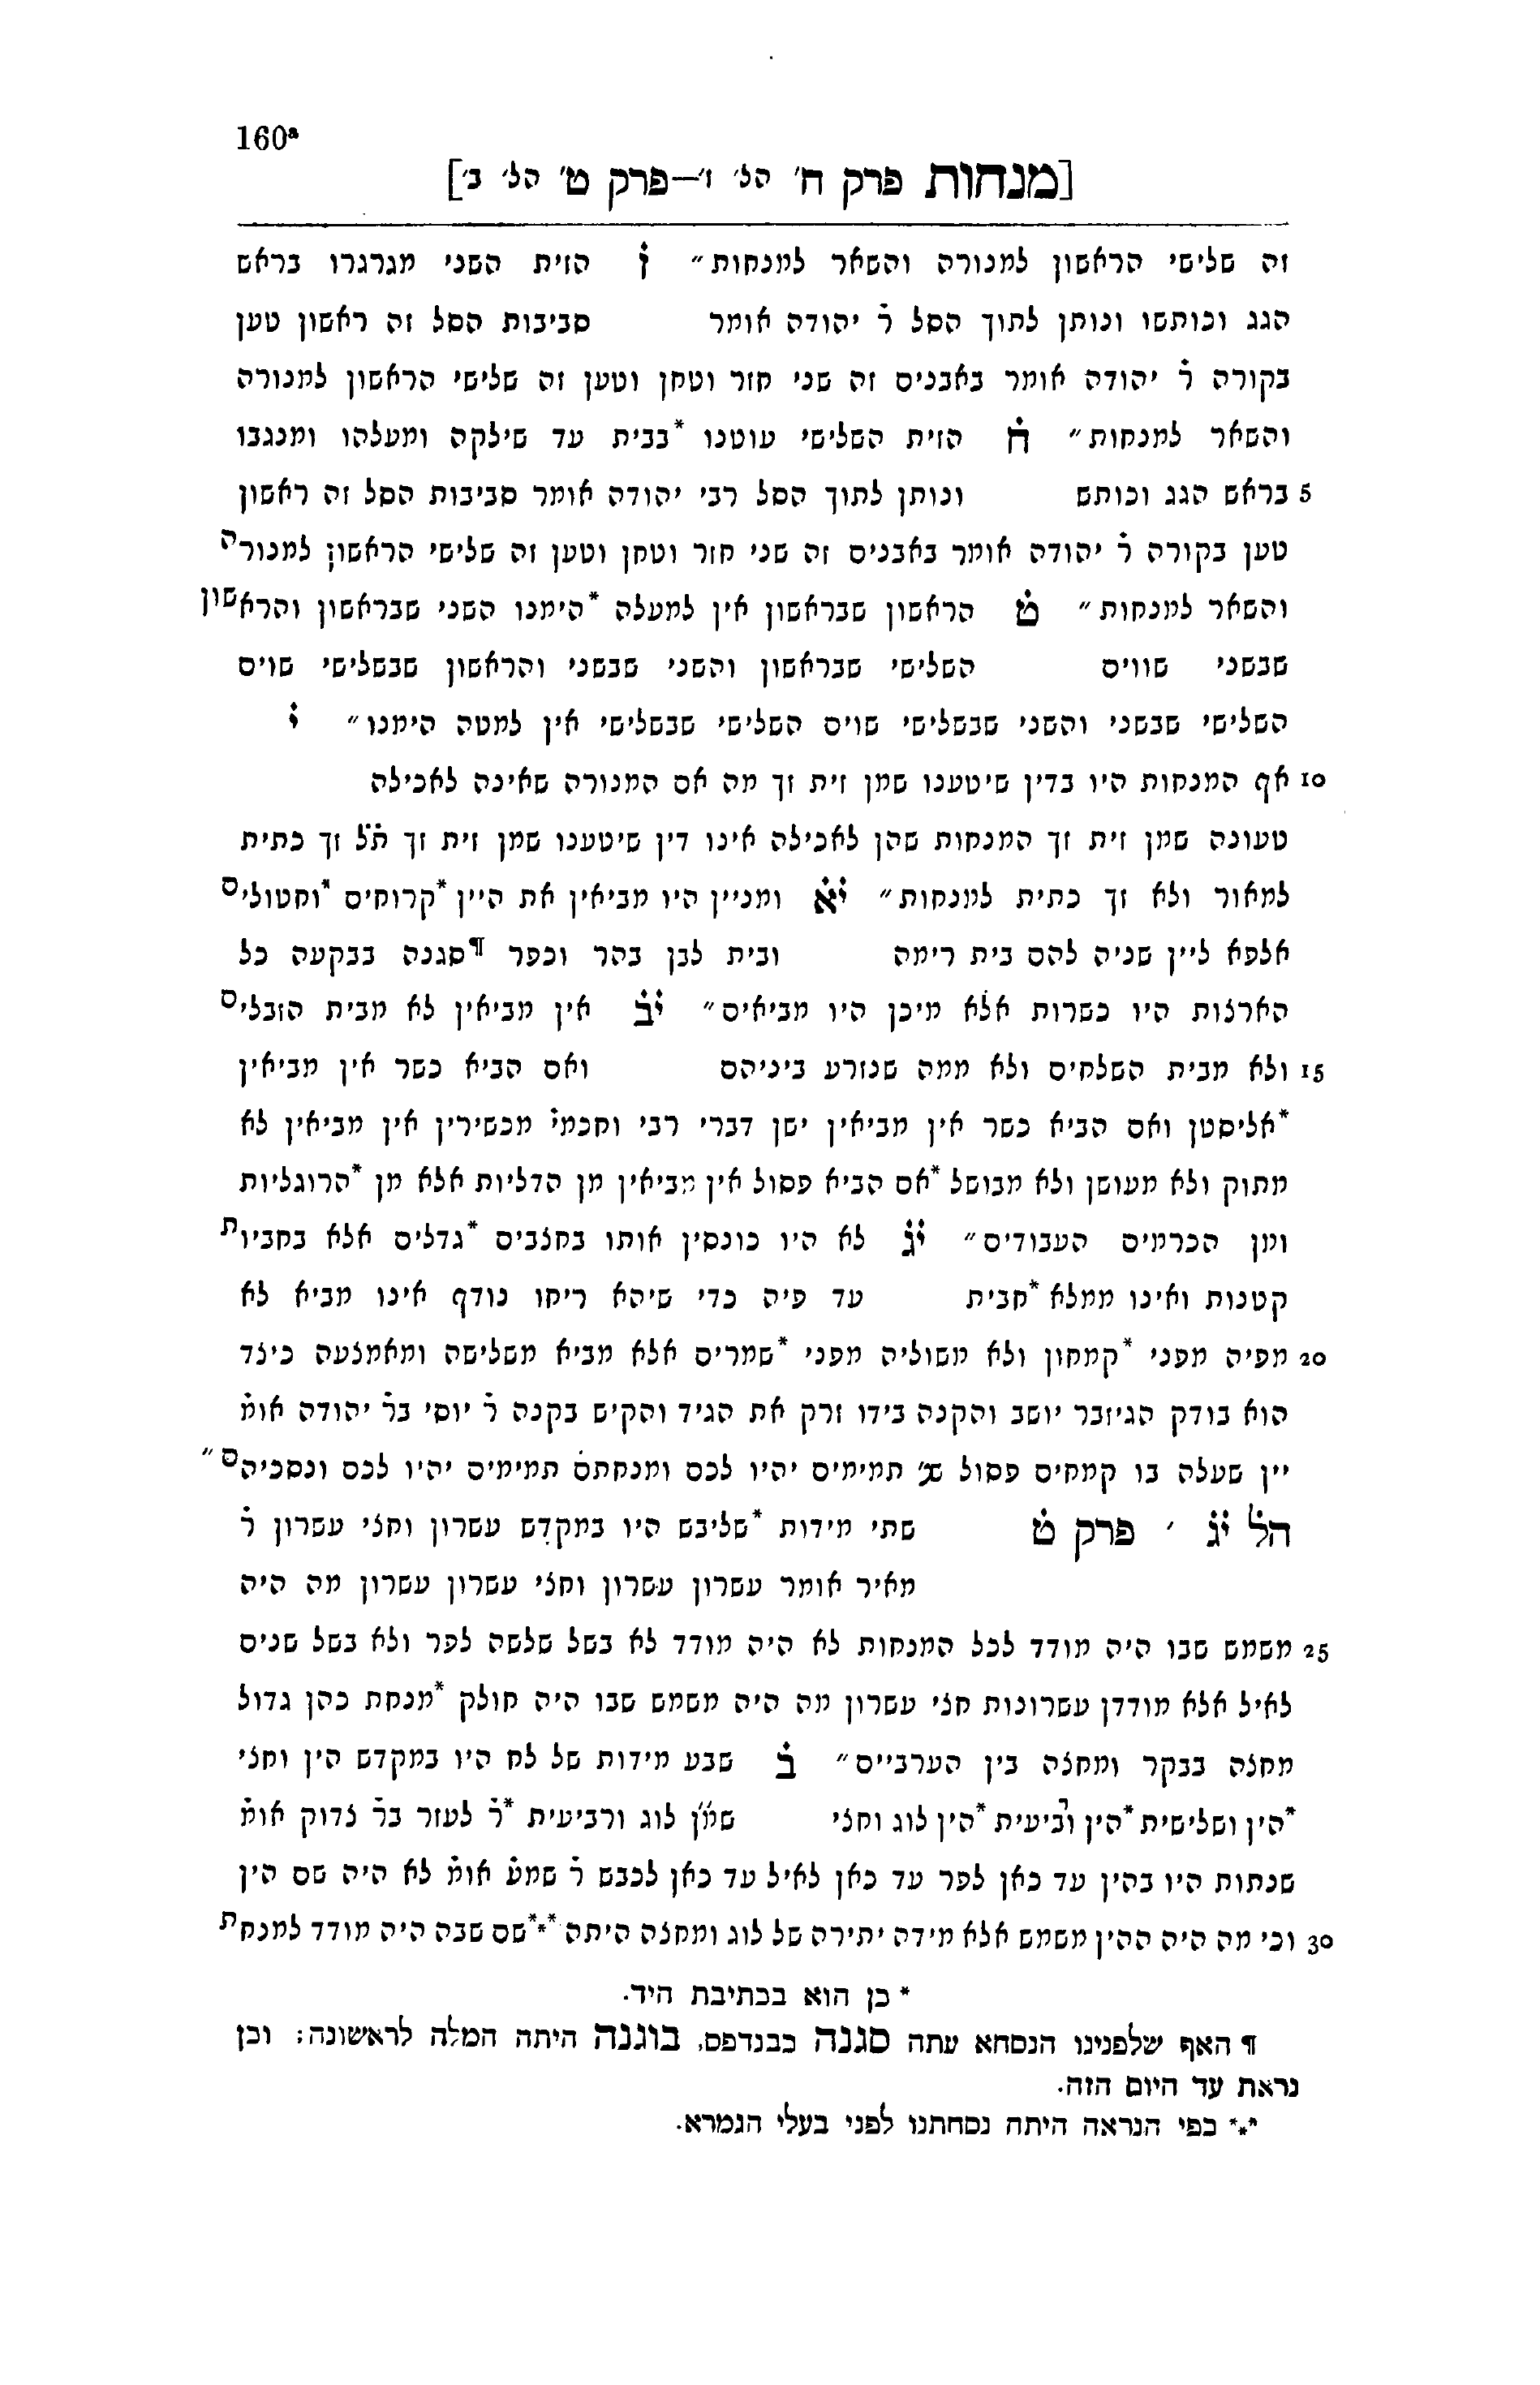 160ª
[מנחות פרק ח' הל' ז'—פרק ט' הל' ב']
זה שלישי הראשון למנורה והשאר למנחות״ ז̇ הזית השני מגרגרו בראש
הגג וכותשו ונותן לתוך הסל ר̇ יהודה אומר סביבות הסל זה ראשון טען
בקורה ר̇ יהודה אומר באבנים זה שני חזר וטחן וטען זה שלישי הראשון למנורה
והשאר למנחות״ ח̇ הזית השלישי עוטנו *בבית עד שילקה ומעלהו ומנגבו
5 בראש הגג וכותש ונותן לתוך הסל רבי יהודה אומר סביבות הסל זה ראשון
טען בקורה ר̇ יהודה אומר באבנים זה שני חזר וטחן וטען זה שלישי הראשון למנורה
והשאר למנחות״ ט̇ הראשון שבראשון אין למעלה *הימנו השני שבראשון והראשון
שבשני שווים השלישי שבראשון והשני שבשני והראשון שבשלישי שוים
השלישי שבשני והשני שבשלישי שוים השלישי שבשלישי אין למטה הימנו״ י̇
10 אף המנחות היו בדין שיטענו שמן זית זך מה אם המנורה שאינה לאכילה
טעונה שמן זית זך המנחות שהן לאכילה אינו דין שיטענו שמן זית זך ת̇ל̇ זך כתית
למאור ולא זך כתית למנחות״ י̇א̇ ומניין היו מביאין את היין *קרוחים *וחטולים
אלפא ליין שניה להם בית רימה ובית לבן בהר וכפר ¶סגנה בבקעה כל
הארצות היו כשרות אלא מיכן היו מביאים״ י̇ב̇ אין מביאין לא מבית הזבלים
15 ולא מבית השלחים ולא ממה שנזרע ביניהם ואם הביא כשר אין מביאין
*אליסטן ואם הביא כשר אין מביאין ישן דברי רבי וחכמי̇ מכשירין אין מביאין לא
מתוק ולא מעושן ולא מבושל *אם הביא פסול אין מביאין מן הדליות אלא מן *הרוגליות
ומן הכרמים העבודים״ י̇ג̇ לא היו כונסין אותו בחצבים *גדלים אלא בחביות
קטנות ואינו ממלא *חבית עד פיה כדי שיהא ריחו נודף אינו מביא לא
20 מפיה מפני *קמחון ולא משוליה מפני *שמרים אלא מביא משלישה ומאמצעה כיצד
הוא בודק הגיזבר יושב והקנה בידו זרק את הגיד והקיש בקנה ר̇ יוסי בר̇ יהודה אומ̇
יין שעלה בו קמחים פסול שנ̇ תמימים יהיו לכם ומנחתם תמימים יהיו לכם ונסכיהם״
הל̇ י̇ג̇ ' פרק ט̇ שתי מידות *שליבש היו במקדש עשרון וחצי עשרון ר̇
מאיר אומר עשרון עשרון וחצי עשרון עשרון מה היה
25 משמש שבו היה מודד לכל המנחות לא היה מודד לא בשל שלשה לפר ולא בשל שנים
לאיל אלא מודדן עשרונות חצי עשרון מה היה משמש שבו היה חולק *מנחת כהן גדול
מחצה בבקר ומחצה בין הערביים״ ב̇ שבע מידות של לח היו במקדש הין וחצי
*הין ושלישית *הין ורביעית *הין לוג וחצי שמ̇ן לוג ורביעית *ר̇ לעזר בר̇ צדוק אומ̇
שנתות היו בהין עד כאן לפר עד כאן לאיל עד כאן לכבש ר̇ שמע̇ אומ̇ לא היה שם הין
30 וכי מה היה ההין משמש אלא מידה יתירה של לוג ומחצה היתה *⁎*שם שבה היה מודד למנחת
* כן הוא בכתיבת היד.
¶ האף שלפנינו הנסחא עתה סגנה כבנדפס, בוגנה היתה המלה לראשונה: וכן
נראת עד היום הזה.
*⁎* כפי הנראה היתה נסחתנו לפני בעלי הגמרא.